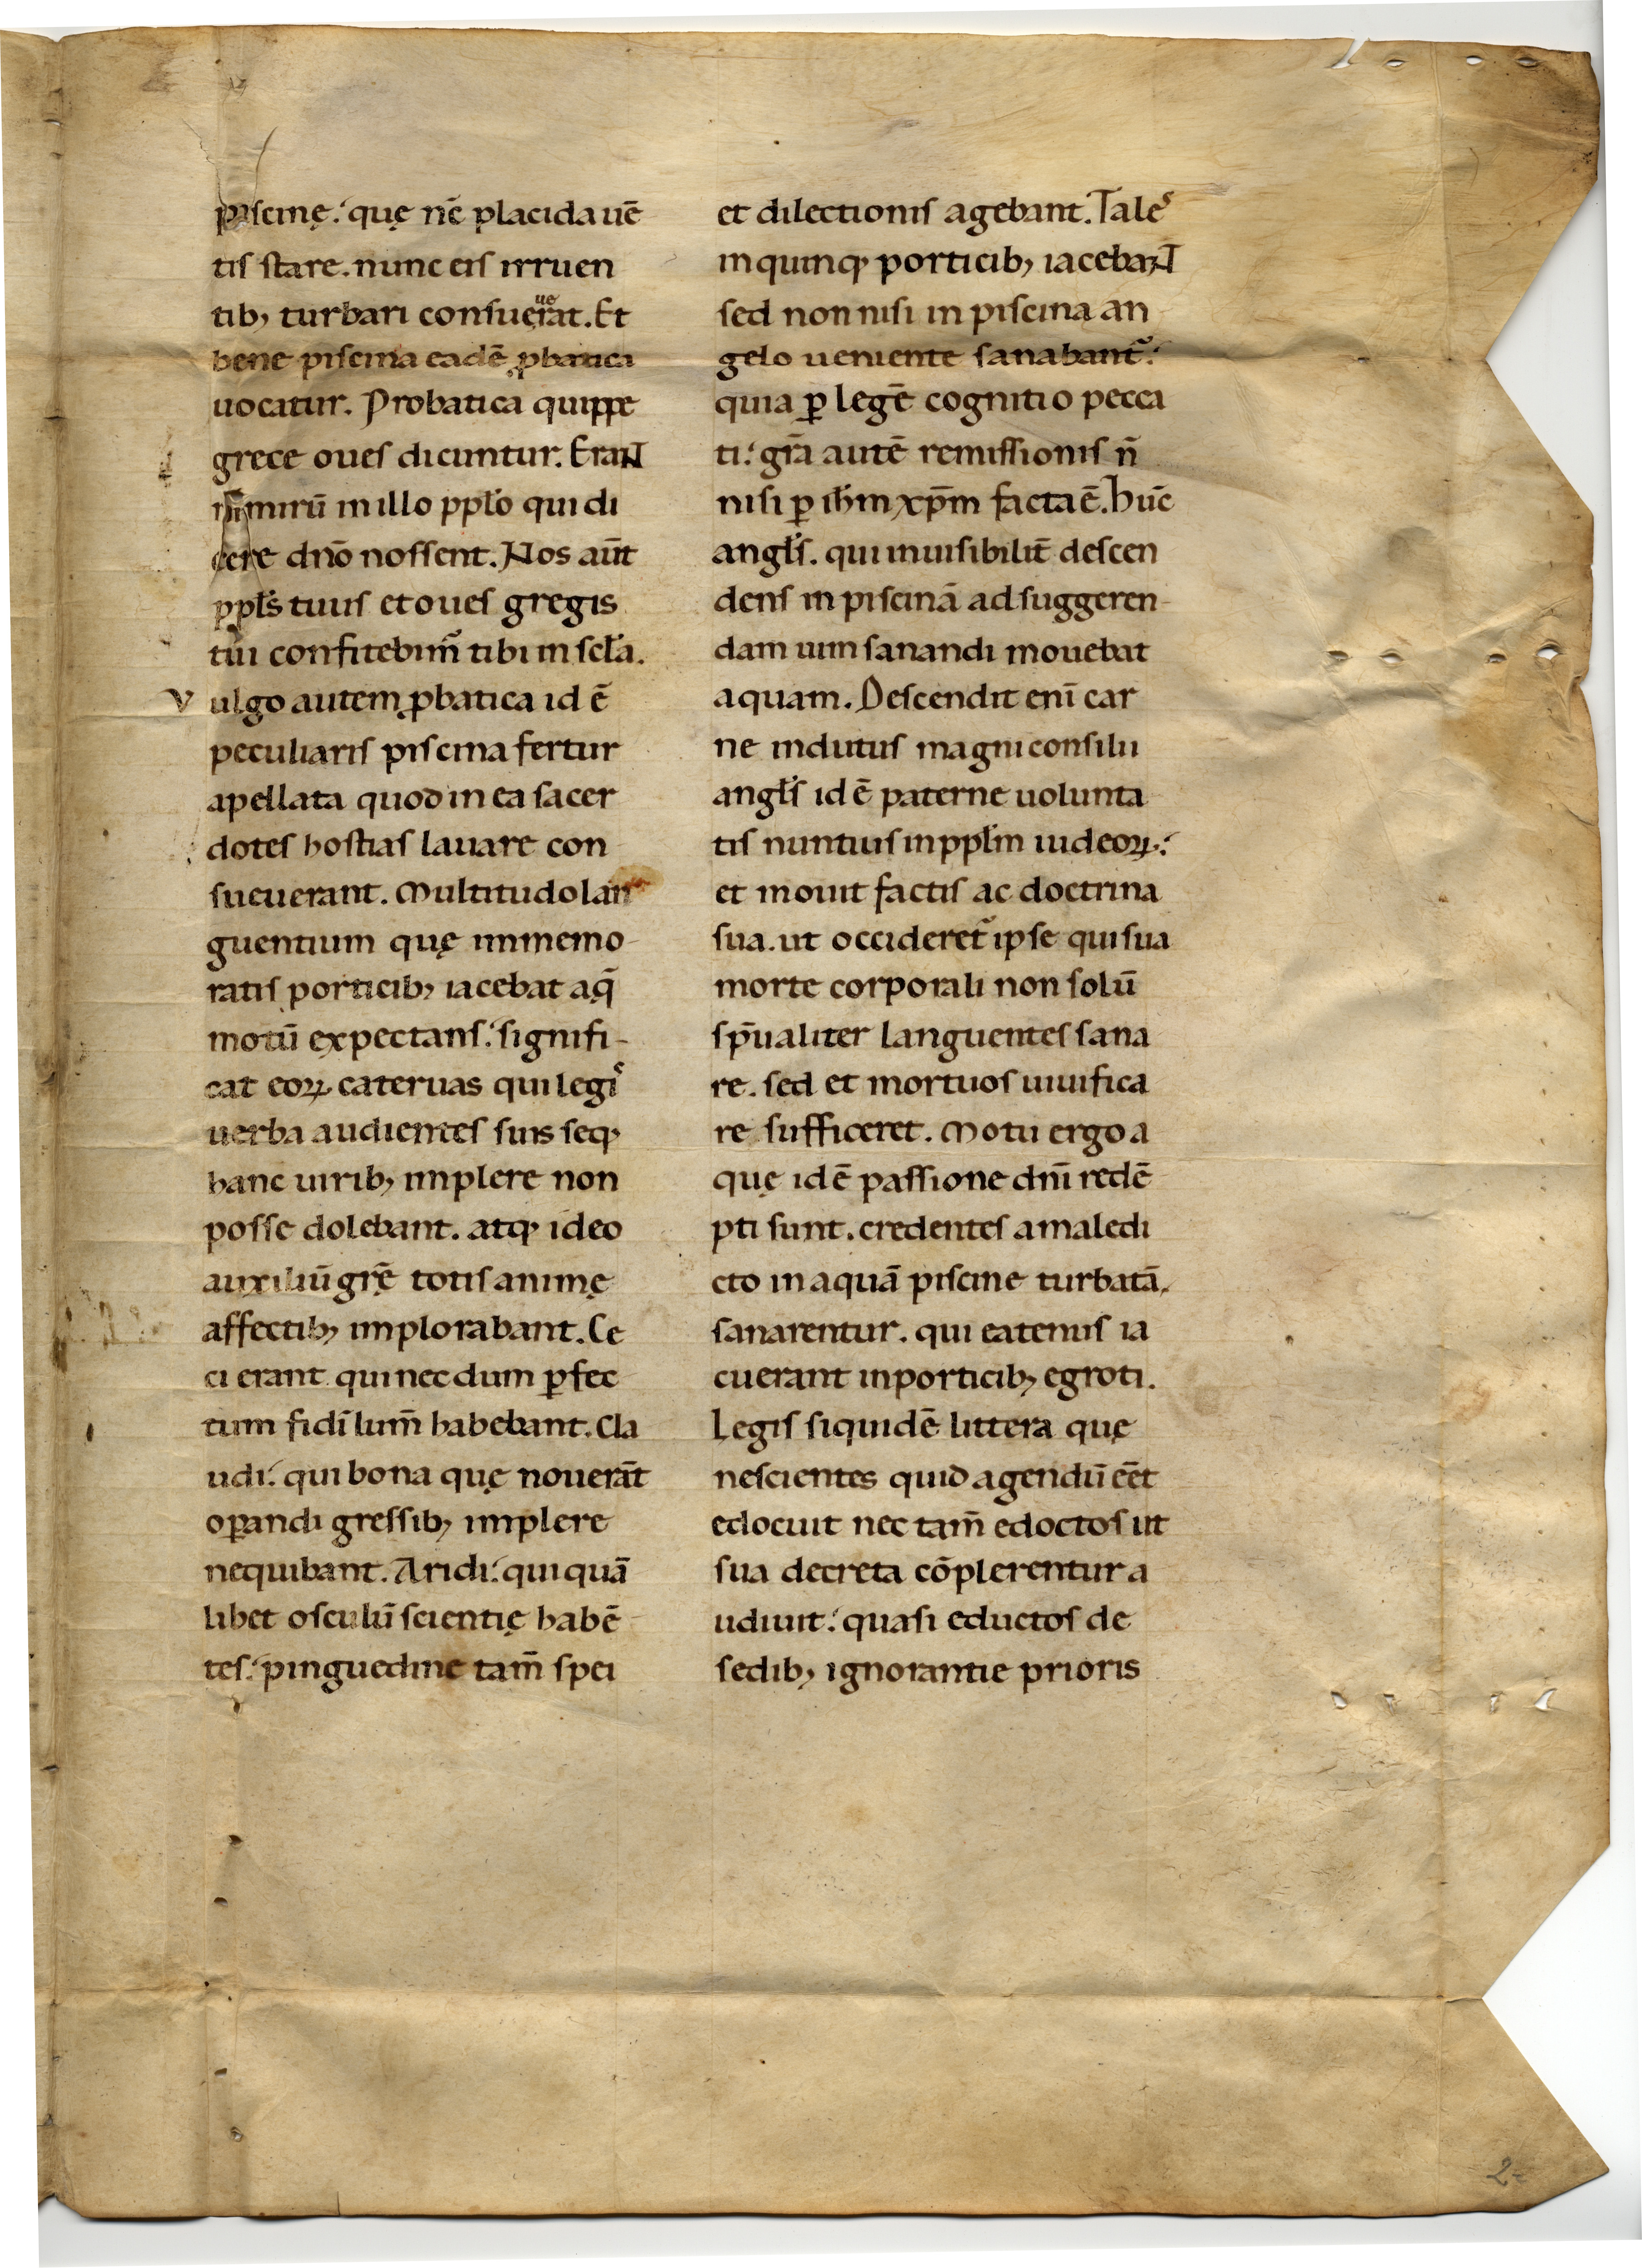 piscinę. quę nc̄ placida uē
tis stare. nunc eis irruen
tib; turbari consueuerat. Et
bene piscina eadē ꝓbatica
uocatur. Probatica quippe
grece oues dicuntur. Erant
nimirū in illo ppl̄o qui di
cere dn̄o nossent. Nos aūt
ppl̄s tuus et oues gregis
tui confitebim̄ tibi in scl̄a.
Vulgo autem ꝓbatica id ē
peculiaris piscina fertur
apellata quod in ea sacer
dotes hostias lauare con
sueuerant. Multitudo lan
guentium quę in memo-
ratis porticib; iacebat aq̄
motū expectans. signifi-
cat eoꝝ cateruas qui legis
uerba audientes suis seq;
hanc uirib; implere non
posse dolebant. atq; ideo
auxiliū grę̄ totis animę
affectib; implorabant. Ce
ci erant qui nec dum ꝑfec
tum fidī lum̄ habebant. Cla
udi. qui bona quę nouerāt
oꝑandi gressib; implere
nequibant. Aridi. qui quā
libet osculū scientię habē
tes. pinguedine tam̄ spei
et dilectionis agebant. Tales
in quinq; porticib; iacebant
sed non nisi in piscina an
gelo ueniente sanabant᷑.
quia ꝑ legē cognitio pecca
ti. gr̄a autē remissionis n̄
nisi ꝑ ih̄m xp̄m facta ē. Huc̄
angl̄s. qui inuisibilit̄ descen
dens in piscinā ad suggeren-
dam uim sanandi mouebat
aquam. Descendit enī car
ne indutus magni consilii
angl̄s id ē paterne uolunta
tis nuntius in ppl̄m iudeoꝝ.
et mouit factis ac doctrina
sua. ut occideret᷑ ipse qui sua
morte corporali non solū
sp̄ualiter languentes sana
re. sed et mortuos uiuifica
re sufficeret. Motu ergo a
quę id ē passione dn̄i redē
pti sunt. credentes a maledi
cto in aquā piscine turbatā.
sanarentur. qui eatenus ia
cuerant in porticib; egroti.
Legis siquidē littera quę
nescientes quid agendū eēt
edocuit nec tam̄ edoctos ut
sua decreta cōplerentur a
udiuit. quasi eductos de
sedib; ignorantie prioris
2